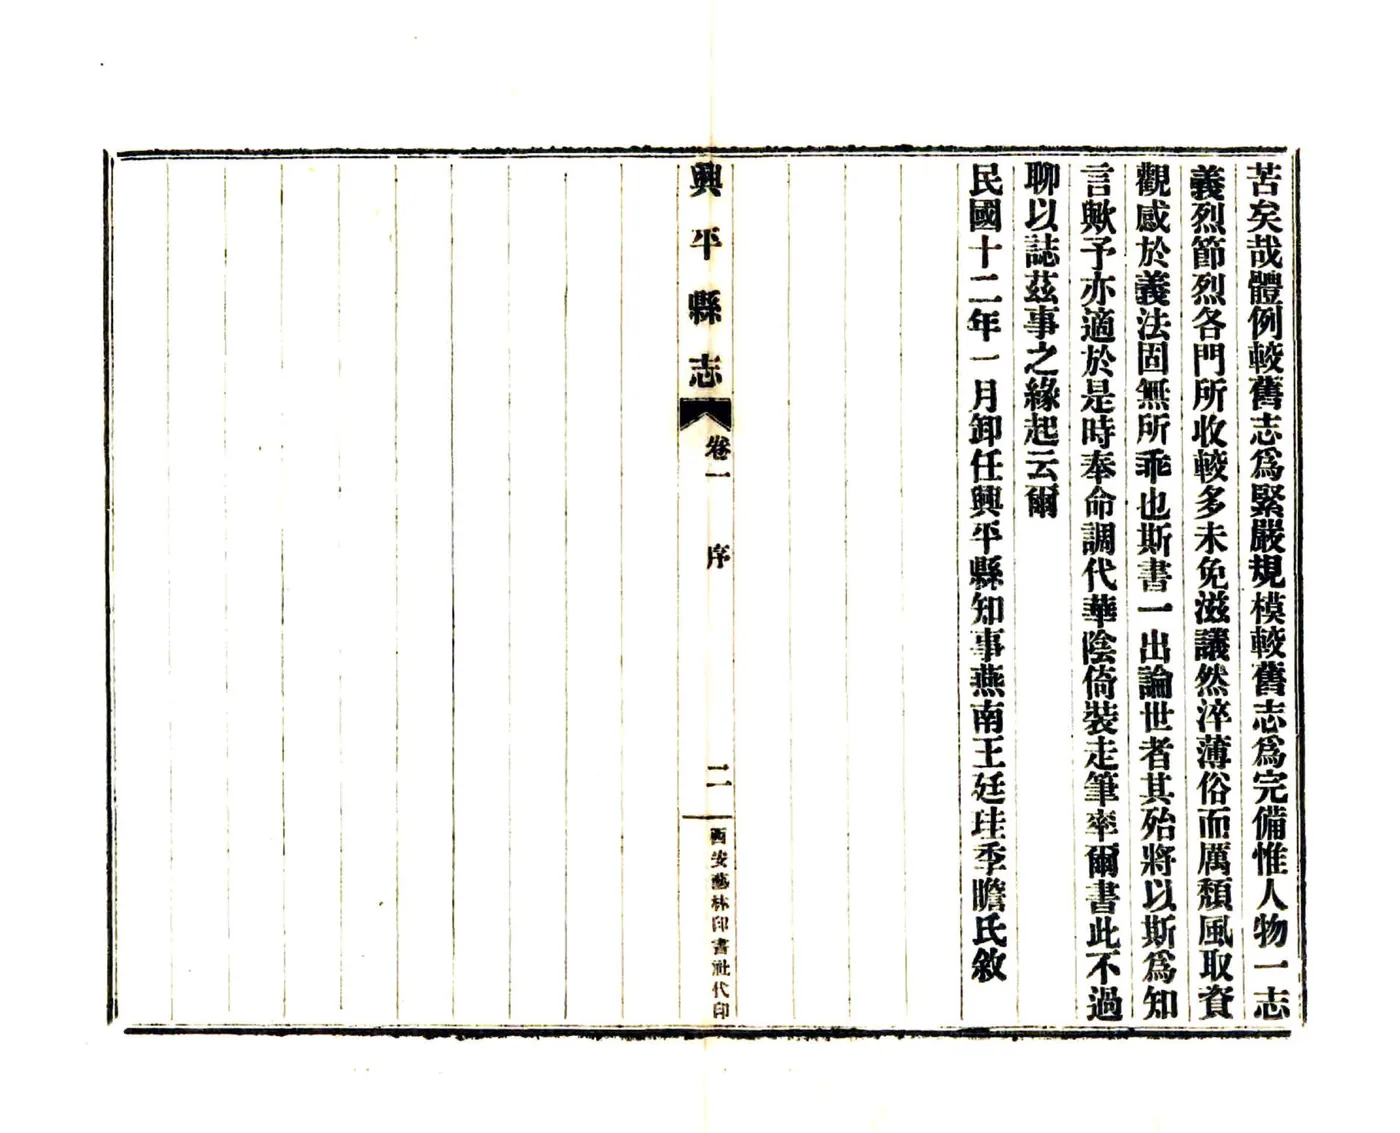 苦矣哉體例較舊志爲緊嚴規模較舊志爲完備惟人物一志
義烈節烈各門所收較多未免滋議然淬薄俗而厲頹風取資
觀感於義法固無所乖也斯書一出論世者其殆將以斯爲知
言歟予亦適於是時奉命調代華陰倚裝走筆率爾書此不過
聊以誌茲事之緣起云爾
民國十二年一月卸任興平縣知事燕南王廷珪季瞻氏敘
興平縣志
卷一 序
二
西安藝林印書社代印